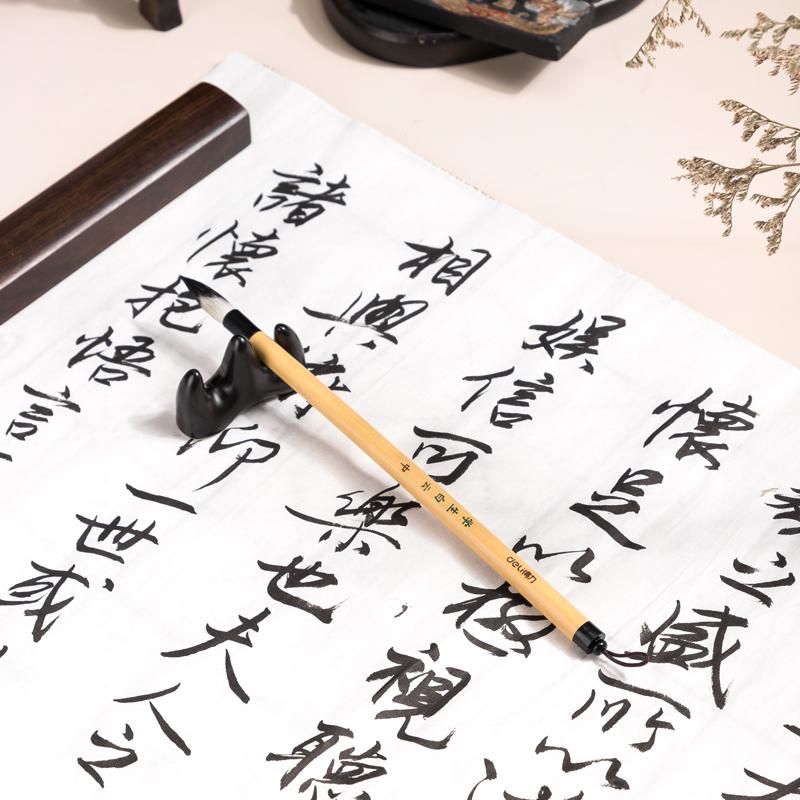 之盛所以
懷足以極視聽
娛信可樂也夫人之
相與俯仰一世或
諸懷抱悟言
白云 中
deli得力